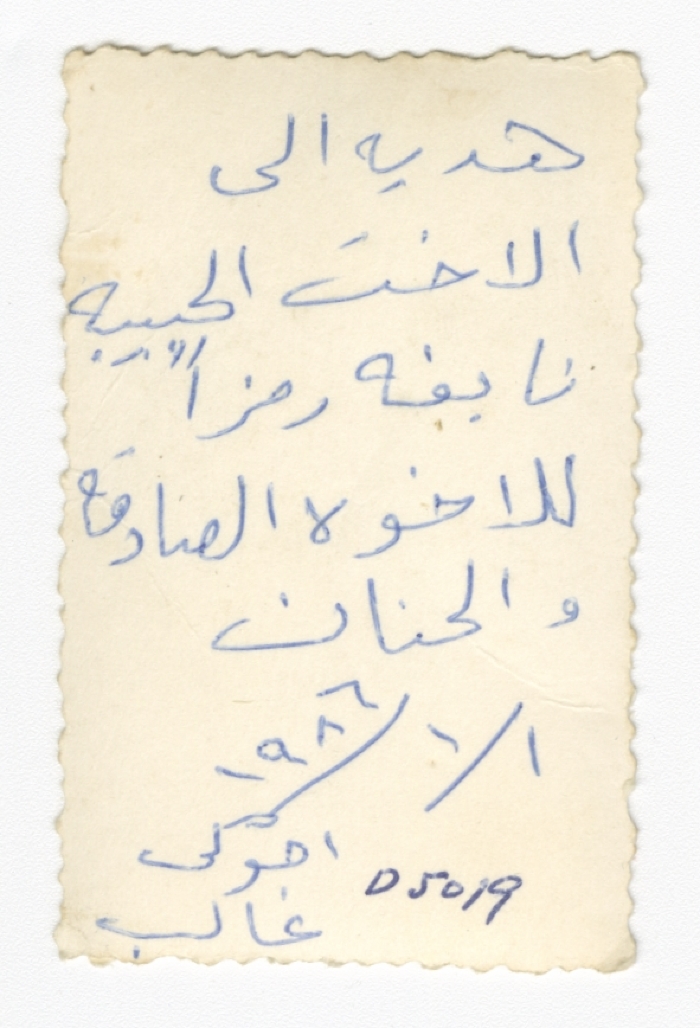 هديه الى
الاخت الحبيبه
نايفه رمزاً
للاخوه الصادقه
والحنان
١ / ١ / ١٩٨٦
اخوكى
غالب
D5019